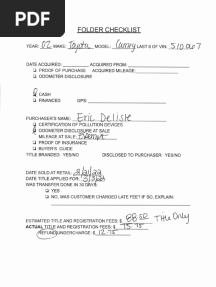 PDF
FOLDER CHECKLIST
YEAR: 02 MAKE: Toyota MODEL: Camry LAST 6 OF VIN: 510067
DATE ACQUIRED: ACQUIRED FROM:
☐ PROOF OF PURCHASE ACQUIRED MILEAGE:
☐ ODOMETER DISCLOSURE
☐ CASH
☐ FINANCED GPS:
PURCHASER'S NAME: Eric Delisle
☐ CERTIFICATION OF POLLUTION DEVICES
☐ ODOMETER DISCLOSURE AT SALE
MILEAGE AT SALE: Exempt
☐ PROOF OF INSURANCE
☐ BUYERS GUIDE
TITLE BRANDED YES/NO DISCLOSED TO PURCHASER: YES/NO
DATE SOLD AT RETAIL:
DATE TITLE APPLIED FOR:
WAS TRANSFER DONE IN 30 DAYS:
☐ YES
☐ NO, WAS CUSTOMER CHARGED LATE FEE? IF SO, EXPLAIN:
ESTIMATED TITLE AND REGISTRATION FEES: $ Title Only
ACTUAL TITLE AND REGISTRATION FEES: $ 75.75
REFUND/UNDERCHARGE: $